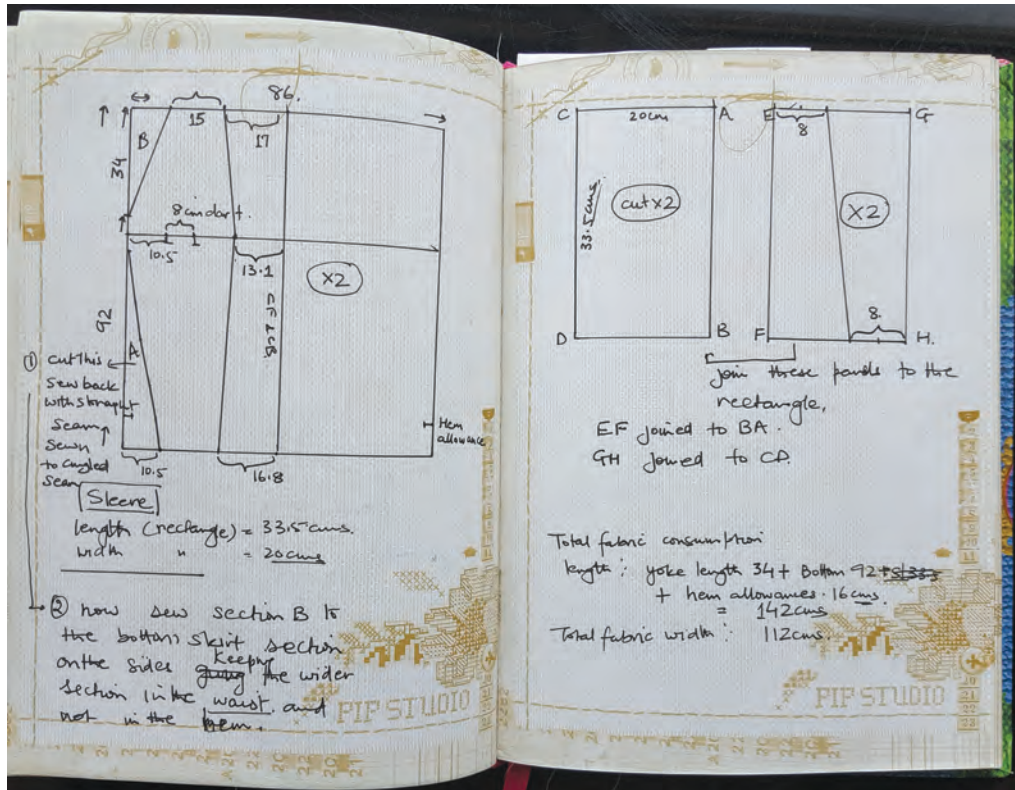 86.
15
17
B
34
8 cm dart.
10.5
13.1
X2
92
A
① cut this
sew back
with straight
seam
sewn
to angled
seam
10.5
16.8
Hem
allowance
Sleeve
length (rectangle) = 33.5 cms.
width " = 20 cms
② now sew section B to
the bottom skirt section
on the sides keeping the wider
section in the waist and
not in the hem.
PIP STUDIO
C
20cm
A
E
8
G
33.5 cms.
cut x2
X2
8.
D
B
F
H.
join these panels to the
rectangle.
EF joined to BA.
GH joined to CD.
Total fabric consumption
length : yoke length 34 + Bottom 92
+ hem allowances. 16 cms.
= 142 cms
Total fabric width : 112 cms.
PIP STUDIO